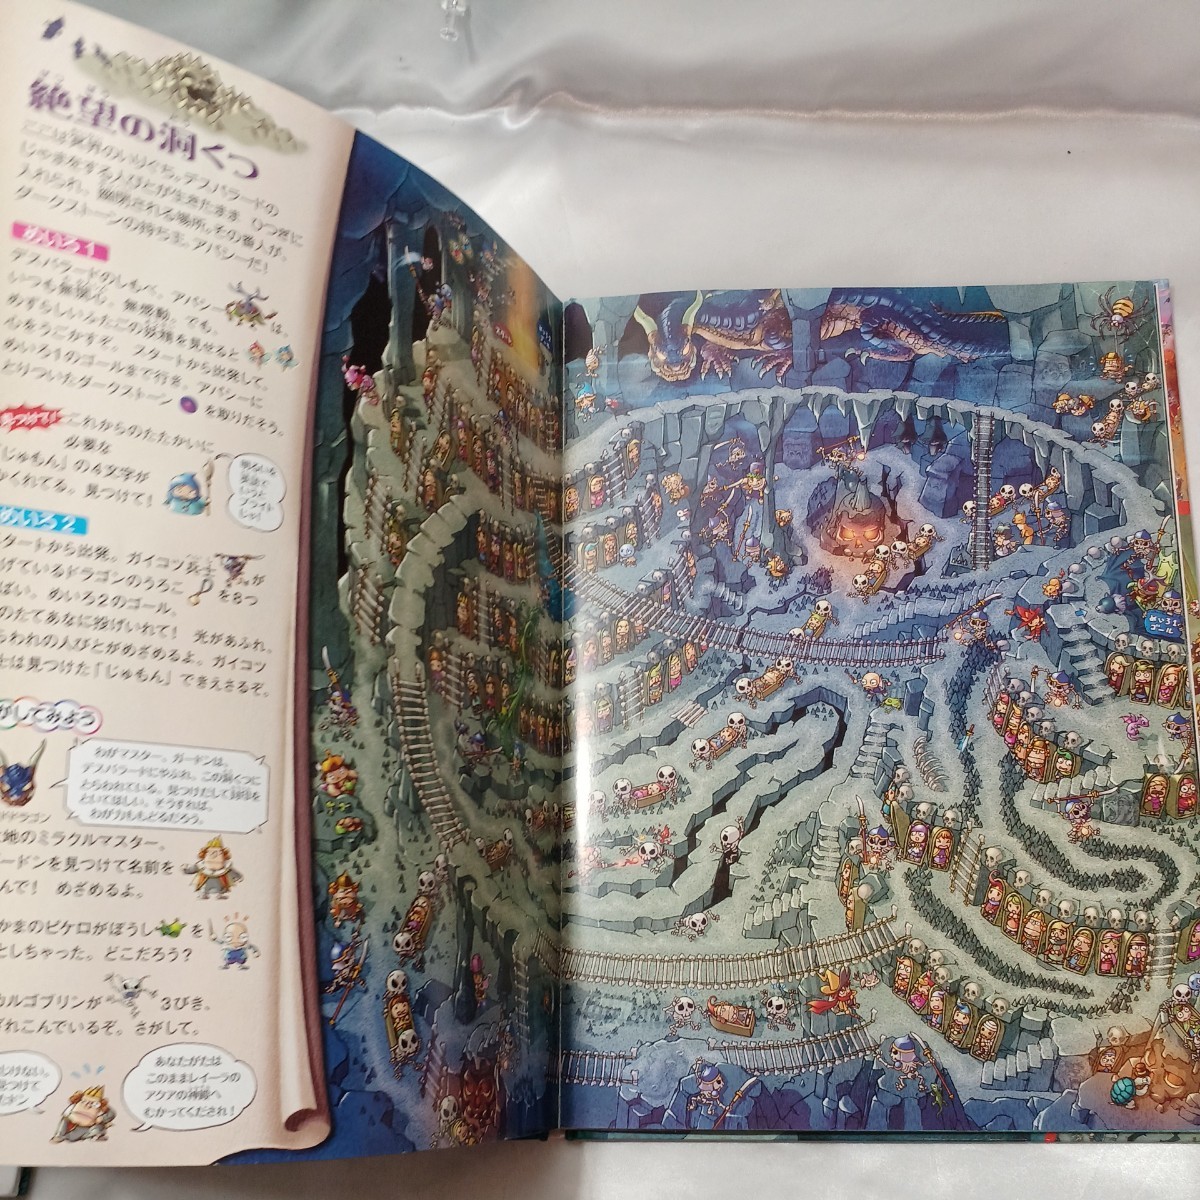 絶望の洞くつ
ここは冥界のいりぐち。デスパラードの
じゃまをする人びとが生きたまま ひつぎに
入れられ、幽閉される場所。その番人が、
ダークストーンの持ち主、アパシーだ！
めいろ1
デスパラードのしもべ、アパシーは、
いつも無関心、無感動。でも、
めずらしいふたごの妖精を見せると
心をうごかすぞ。スタートから出発して、
めいろ1のゴールまで行き、アパシーに
とりついたダークストーンを取りだそう。
見つけて！
これからのたたかいに
必要な
「じゅもん」の4文字が
かくれてる。見つけて！
明るいを
英語で
いうと
ブライト
じゃ！
めいろ2
スタートから出発。ガイコツ兵士が
げているドラゴンのうろこを8つ
ばい、めいろ2のゴール、
のたてあなに投げいれて！ 光があふれ、
らわれの人びとがめざめるよ。ガイコツ
士は見つけた「じゅもん」できえさるぞ。
がしてみよう
わがマスター、ガードンは、
デスパラードにやぶれ、この洞くつに
とらわれている。見つけだして封印を
といてほしい。そうすれば、
わが力ももどるだろう。
ドドラゴン
地のミラクルマスター、
ガードンを見つけて名前を
んで！ めざめるよ。
かまのピケロがぼうしを
としちゃった。どこだろう？
カルゴブリンが3びき、
ぎれこんでいるぞ。さがして。
あなたがたは
このままレイーラの
アクアの神殿へ
むかってくだされ！
めいろ2
ゴール